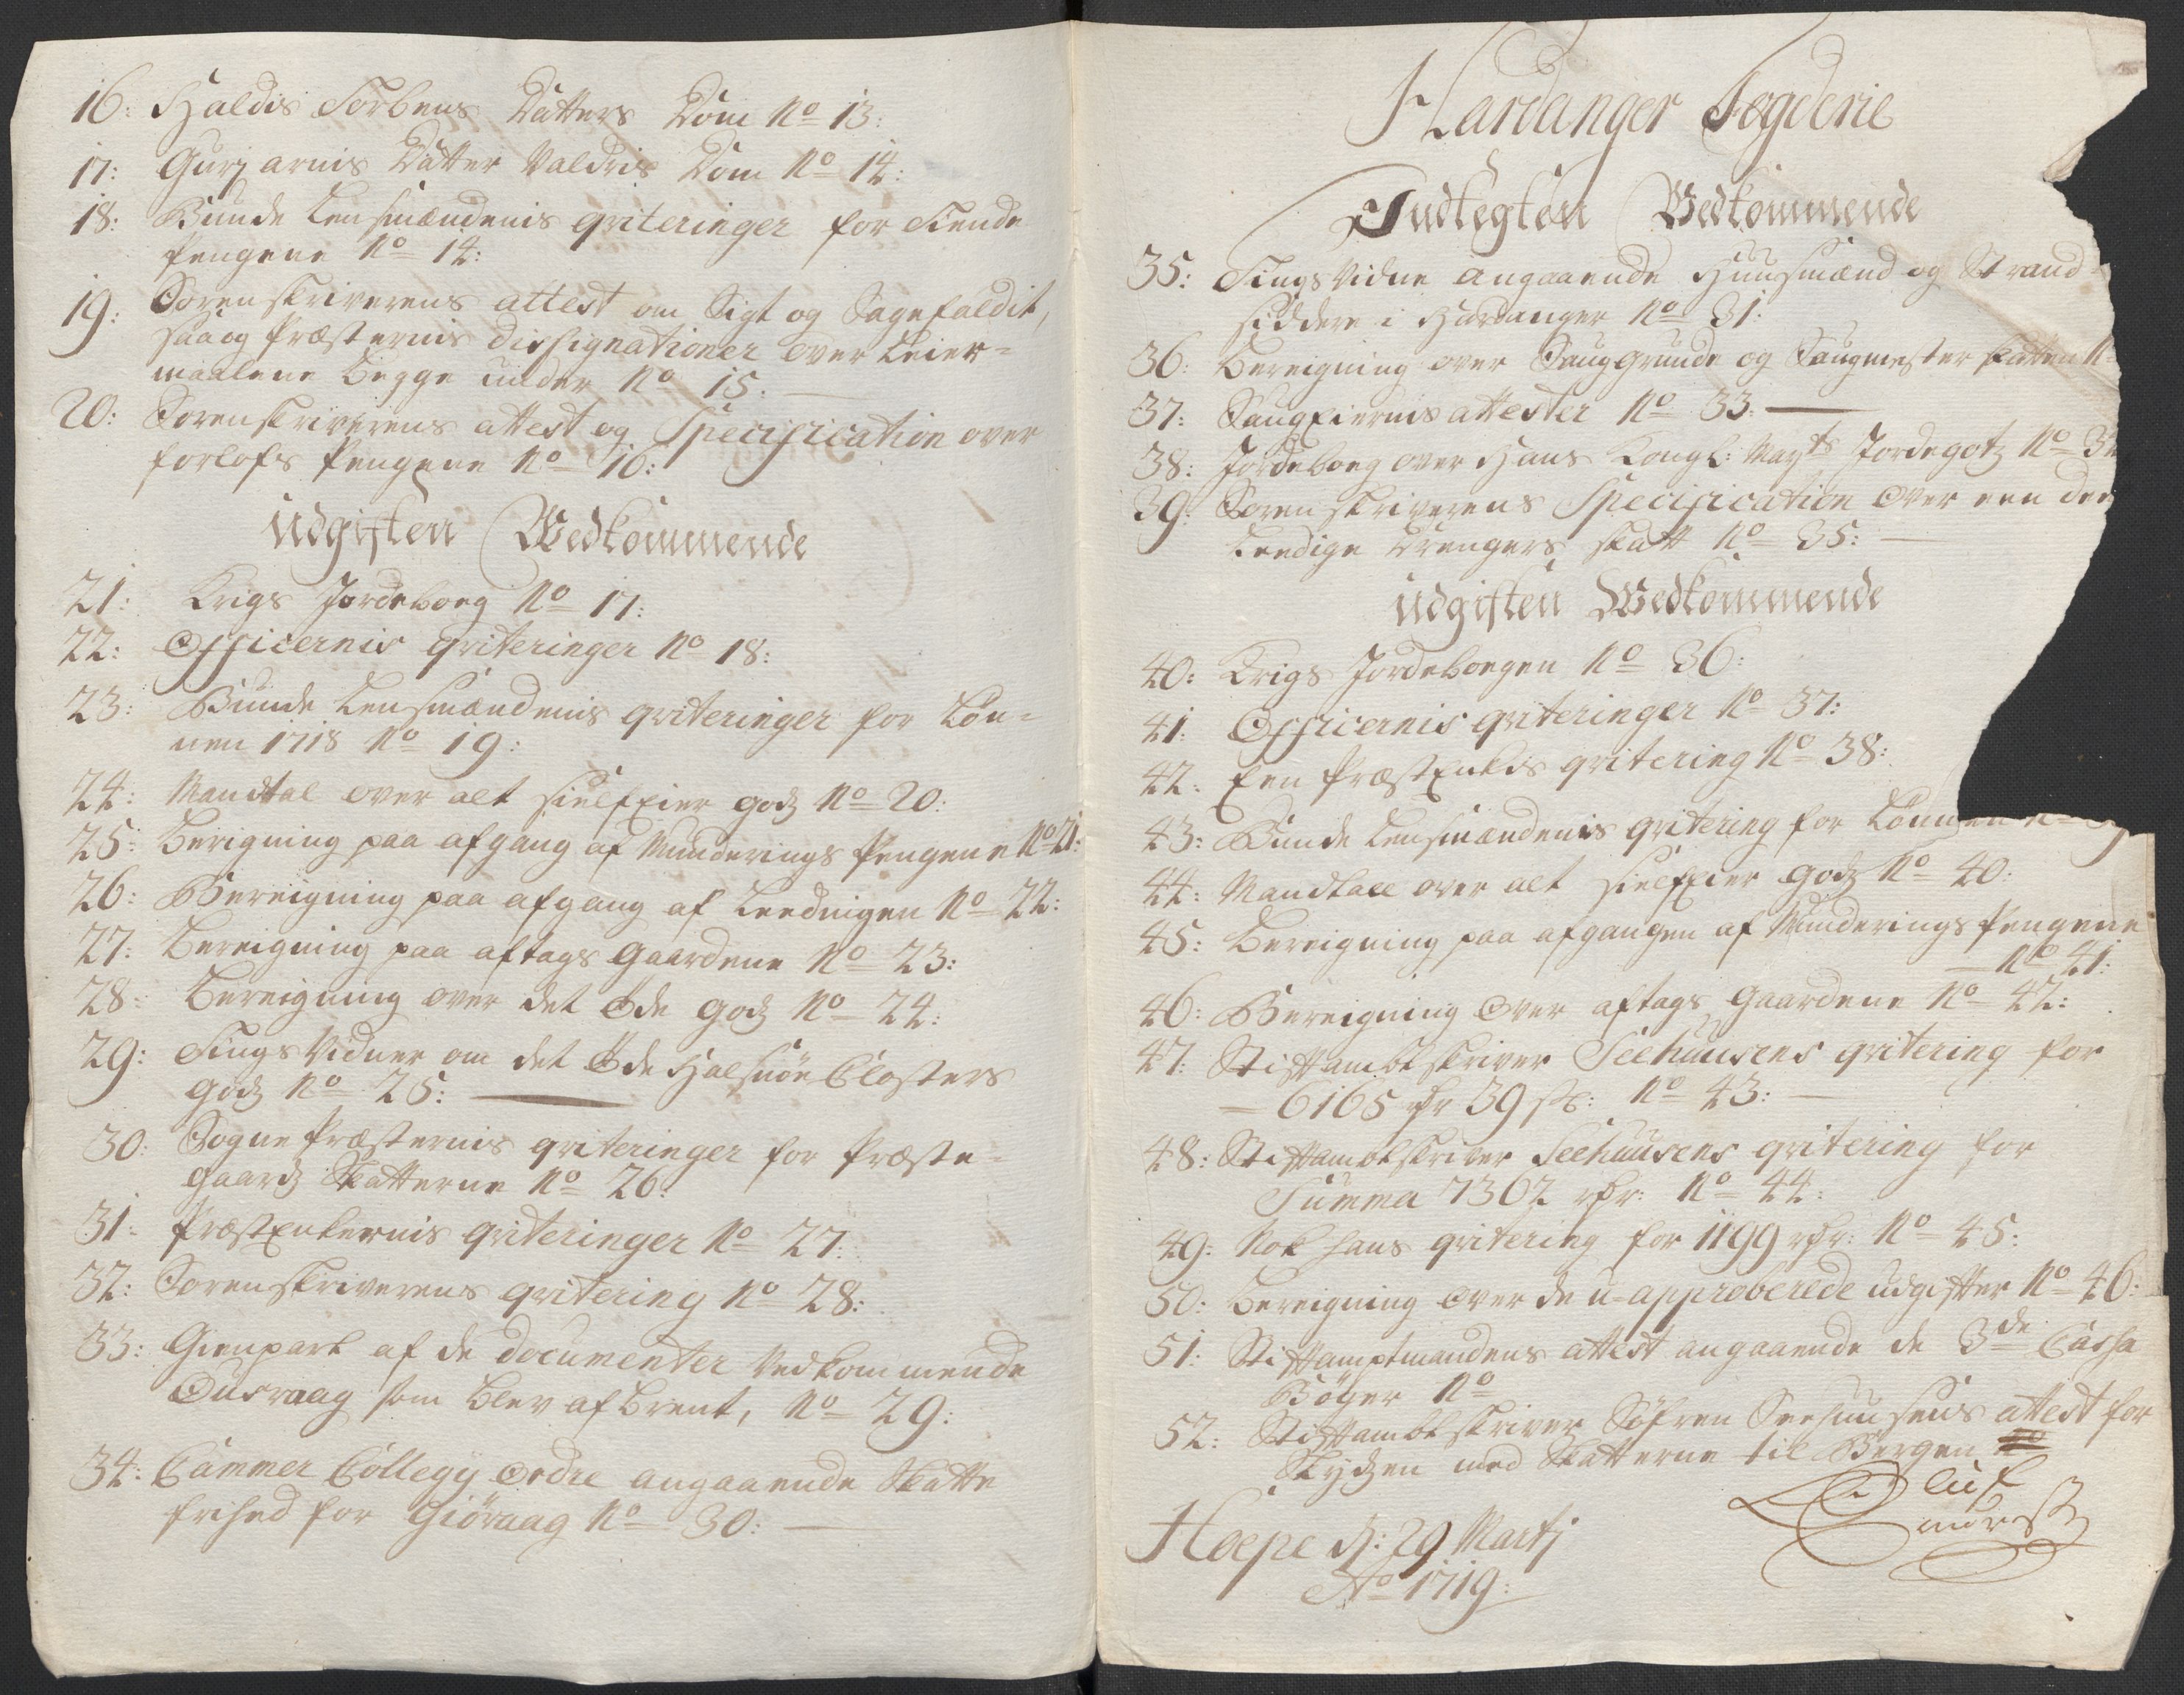 16: Haldis Torbens Datters Dom No 13:
17: Gurj arnis Datter Valdris Dom No 14:
18: Bunde Lensmændenis qviteringer for Tiende
Pengene No 14:
19: Sorenskriverens attest om Sigt og Sagefaldit,
saaog Præsternis dessignationer over Leier=
maalene begge under No 15.
20: Sorenskriverens attest og Specification over
forlofs Pengene No 16:
Udgiften Vedkommende
21: Krigs Jordeboeg No 17:
22: Officernis qviteringer No 18:
23: Bunde Lensmændenis qviteringer for Løn=
nen 1718 No 19:
24: Mandtal over alt sielfeier godz No 20:
25: Berigning paa afgang af Munderings Pengene No 21:
26: Bereigning paa afgang af Leedingen No 22:
27: Bereigning paa aftags Gaardene No 23:
28: Bereigning over det øde godz No 24:
29: Tings Vidner om det øde Halsnöe Closters
godz No 25:
30: Sogne Præsternis qviteringer for Præste=
gaardz Skatterne No 26:
31: Præstenkernis qviteringer No 27:
32: Sorenskriverens qvitering No 28:
33: Gienpart af de documenter Vedkommende
Ousvaag som blev afbrent, No 29:
34: Cammer Collegij Ordre angaaende Skatte
frihed for Giöraag No 30:
Hardanger Fogderie
Indtegten Vedkommende
35: Tings Vidne angaaende Huusmænd og Strand=
siddere i Hardanger No 31:
36: Bereigning over Sauggrunde og Saugmester skatten N
37: Saugeiernis attester No 33.
38: Jordeboeg over Hans Kongl: Mayts Jordegotz No 3
39: Sorenskriverens Specification over een deel
Leedige Drengers skatt No 35:
Udgiften Vedkommende
40: Krigs Jordeboegen No 36:
41: Officernis qviteringer No 37:
42: Een Præstenkes qvitering No 38:
43: Bunde Lensmændenis qvitering for Lønnen
44: Mandtall over alt sielfeier godz No 40:
45: Bereigning paa afgangen af Munderings Pengene
No 41:
46: Bereigning over aftags Gaardene No 42:
47: Stiftambtskriver Seehuusens qvitering for
6165 rdr 39 sk: No 43:
48: Stiftambtskriver Seehuusens qvitering for
Summa 7302 rdr: No 44:
49: Nok hans qvitering for 1199 rdr: No 45:
50: Bereigning over de u-approberede udgifter No 46:
51: Stiftamptmandens attest angaaende de 3de Cassa
Böger No
52: Stiftambtskriver Söfren Seehuusens attest for
Skydzen med Skatterne til Bergen
Hoepe d: 29 Martj
Ao 1719: